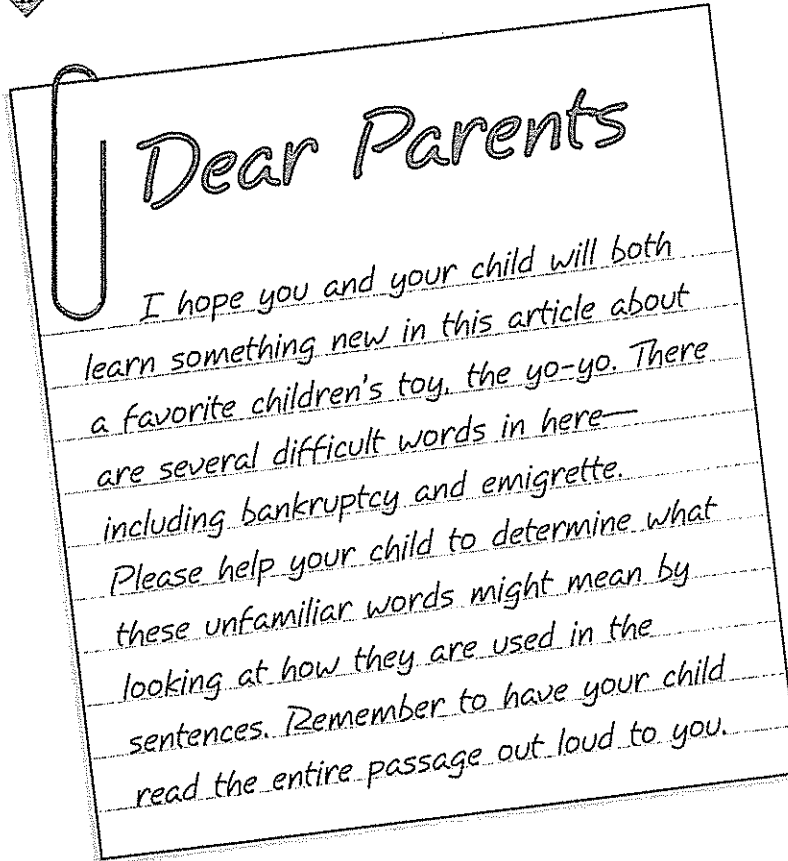 Dear Parents
I hope you and your child will both
learn something new in this article about
a favorite children's toy, the yo-yo. There
are several difficult words in here—
including bankruptcy and emigrette.
Please help your child to determine what
these unfamiliar words might mean by
looking at how they are used in the
sentences. Remember to have your child
read the entire passage out loud to you.